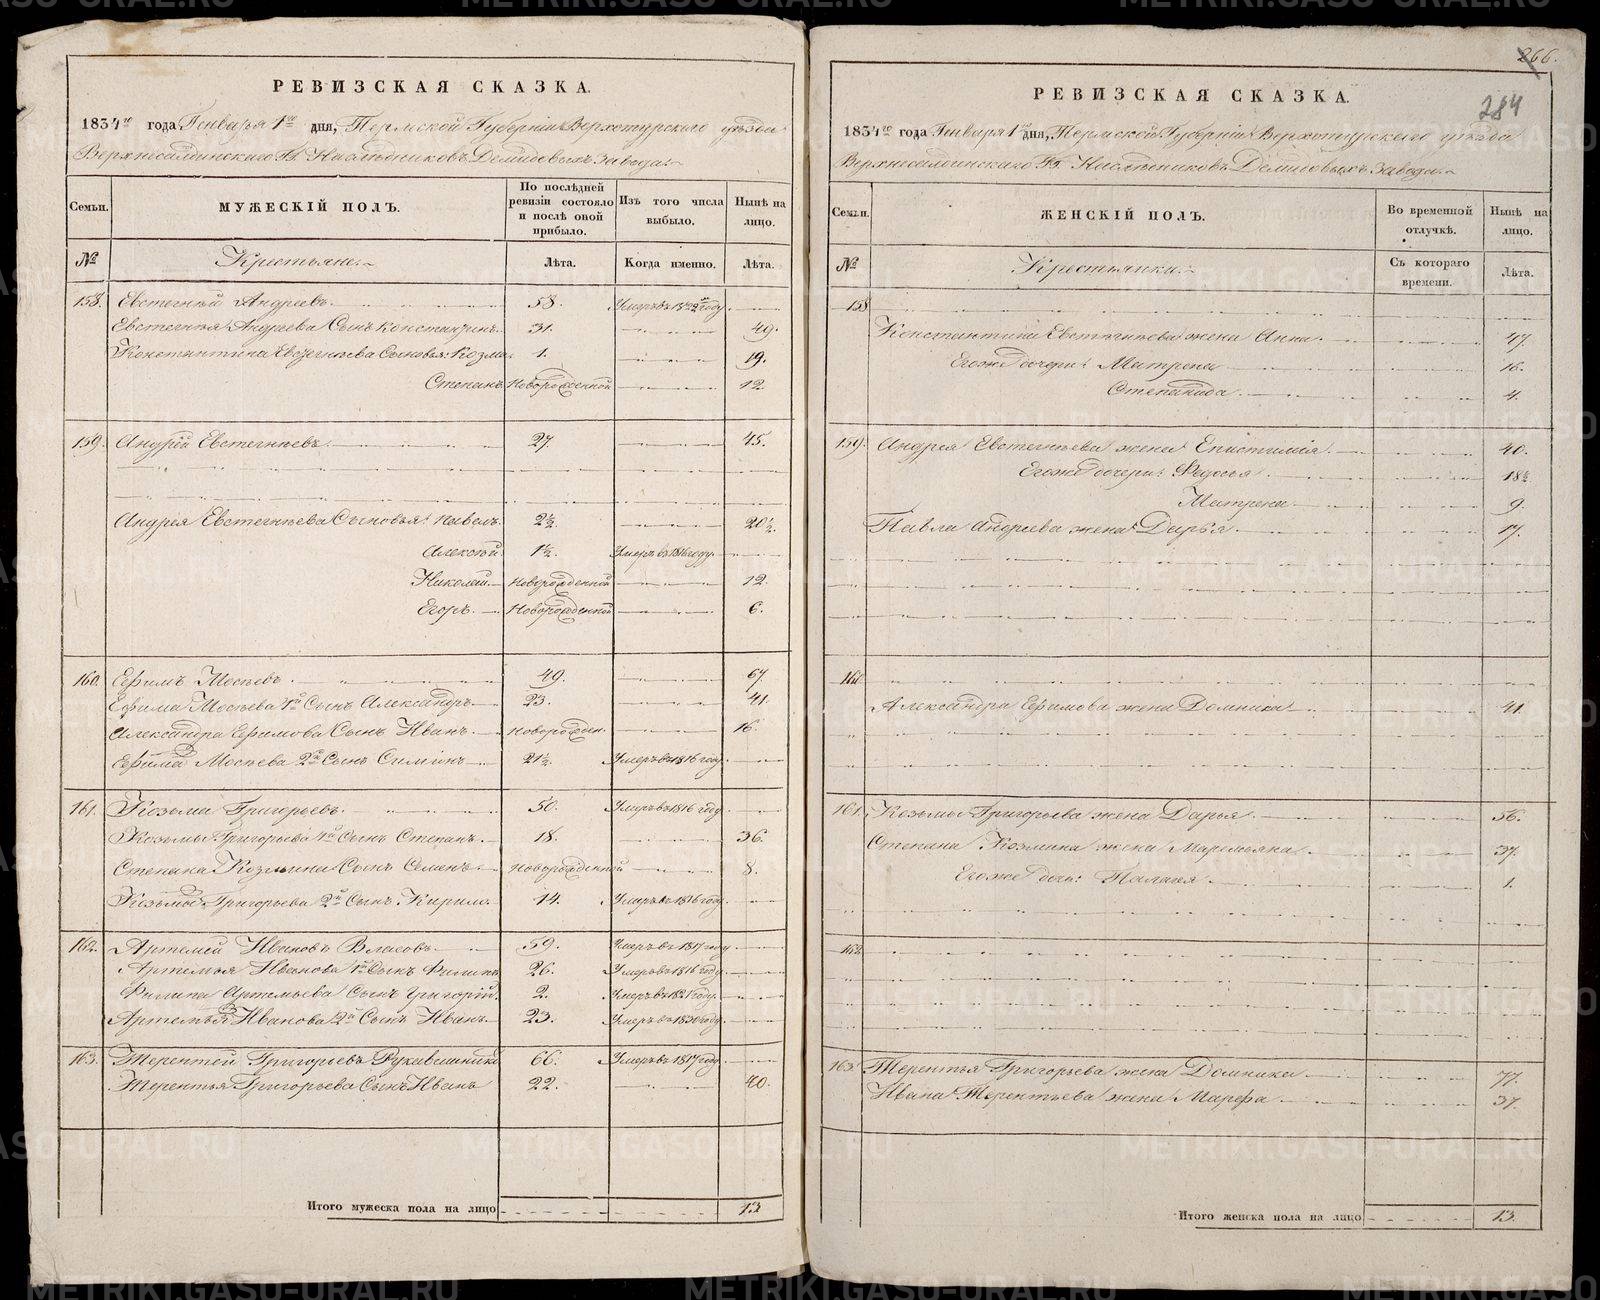 РЕВИЗСКАЯ СКАЗКА.
1834го года Генваря 1го дня, Пермской Губерніи Верхотурскаго уѣзда
Верхнесалдинскаго Гг. Наслѣдниковъ Демидовыхъ завода.
Семьи.
МУЖЕСКІЙ ПОЛЪ.
По послѣдней ревизіи состояло и послѣ оной прибыло.
Изъ того числа выбыло.
Нынѣ на лицо.
№
Крестьяне.
Лѣта.
Когда именно.
Лѣта.
158. Евстегнѣй Андреевъ. 58. Умеръ въ году
Евстегнѣя Андреева Сынъ Константинъ 31. 49.
Константина Евстегнѣева Сыновья: Козма 1. 19.
Степанъ Новорожденной 12
159. Андрей Евстегнѣевъ 27 45.
Андрея Евстегнѣева Сыновья: Павелъ 2½ 20½
Алексѣй 1½. Умеръ въ 1816 году.
Николай Новорожденной 12.
Егоръ. Новорожденной 6.
160. Ефимъ Мосѣевъ 49. 67.
Ефима Мосѣева 1й Сынъ Александръ 23. 41.
Александра Ефимова Сынъ Иванъ. Новорожден. 16.
Ефима Мосѣева 2й Сынъ Симіонъ 21½. Умеръ въ 1816 году.
161. Козьма Григорьевъ. 50. Умеръ въ 1816 году.
Козьмы Григорьева 1й Сынъ Степанъ. 18. 36.
Степана Козмина Сынъ Новорожденной 8.
Козьмы Григорьева 2й Сынъ 14. Умеръ въ 1816 году.
162. Артемей Ивановъ Власовъ. 59. Умеръ въ 1817 году
Артемья Иванова 1й Сынъ Филипъ 26. Умеръ въ 1816 году.
Филипа Артемьева Сынъ Григорій. 2. Умеръ въ 1821 году.
Артемья Иванова 2й Сынъ Иванъ. 23. Умеръ въ 1830 году.
163. Терентей Григорьевъ Рукавишниковъ 66. Умеръ въ 1817 году
Терентья Григорьева Сынъ Иванъ 22. 40.
Итого мужеска пола на лицо 13
266.
284
РЕВИЗСКАЯ СКАЗКА.
1834го года Генваря 1го дня, Пермской Губерніи Верхотурскаго уѣзда
Верхнесалдинскаго Гг. Наслѣдниковъ Демидовыхъ завода.
Семьи.
ЖЕНСКІЙ ПОЛЪ.
Во временной отлучкѣ.
Нынѣ на лицо.
№
Крестьянки.
Съ котораго времени.
Лѣта.
158
Константина Евстегнѣева жена Анна. 47.
Егоже дочери: Матрена 16.
Степанида. 4.
159. Андрея Евстегнѣева жена Епистимія. 40.
Егоже дочери: Федосья 18½
Матрена 9.
Павла Андреева жена Дарья 17.
160
Александра Ефимова жена Домника 41.
161. Козьмы Григорьева жена Дарья. 56.
Степана Козмина жена Маремьяна. 37.
Егоже дочь: Палагея. 1.
162.
163. Терентья Григорьева жена Домника. 77.
Ивана Терентьева жена Марфа. 37.
Итого женска пола на лицо 13.
METRIKI.GASO-URAL.RU